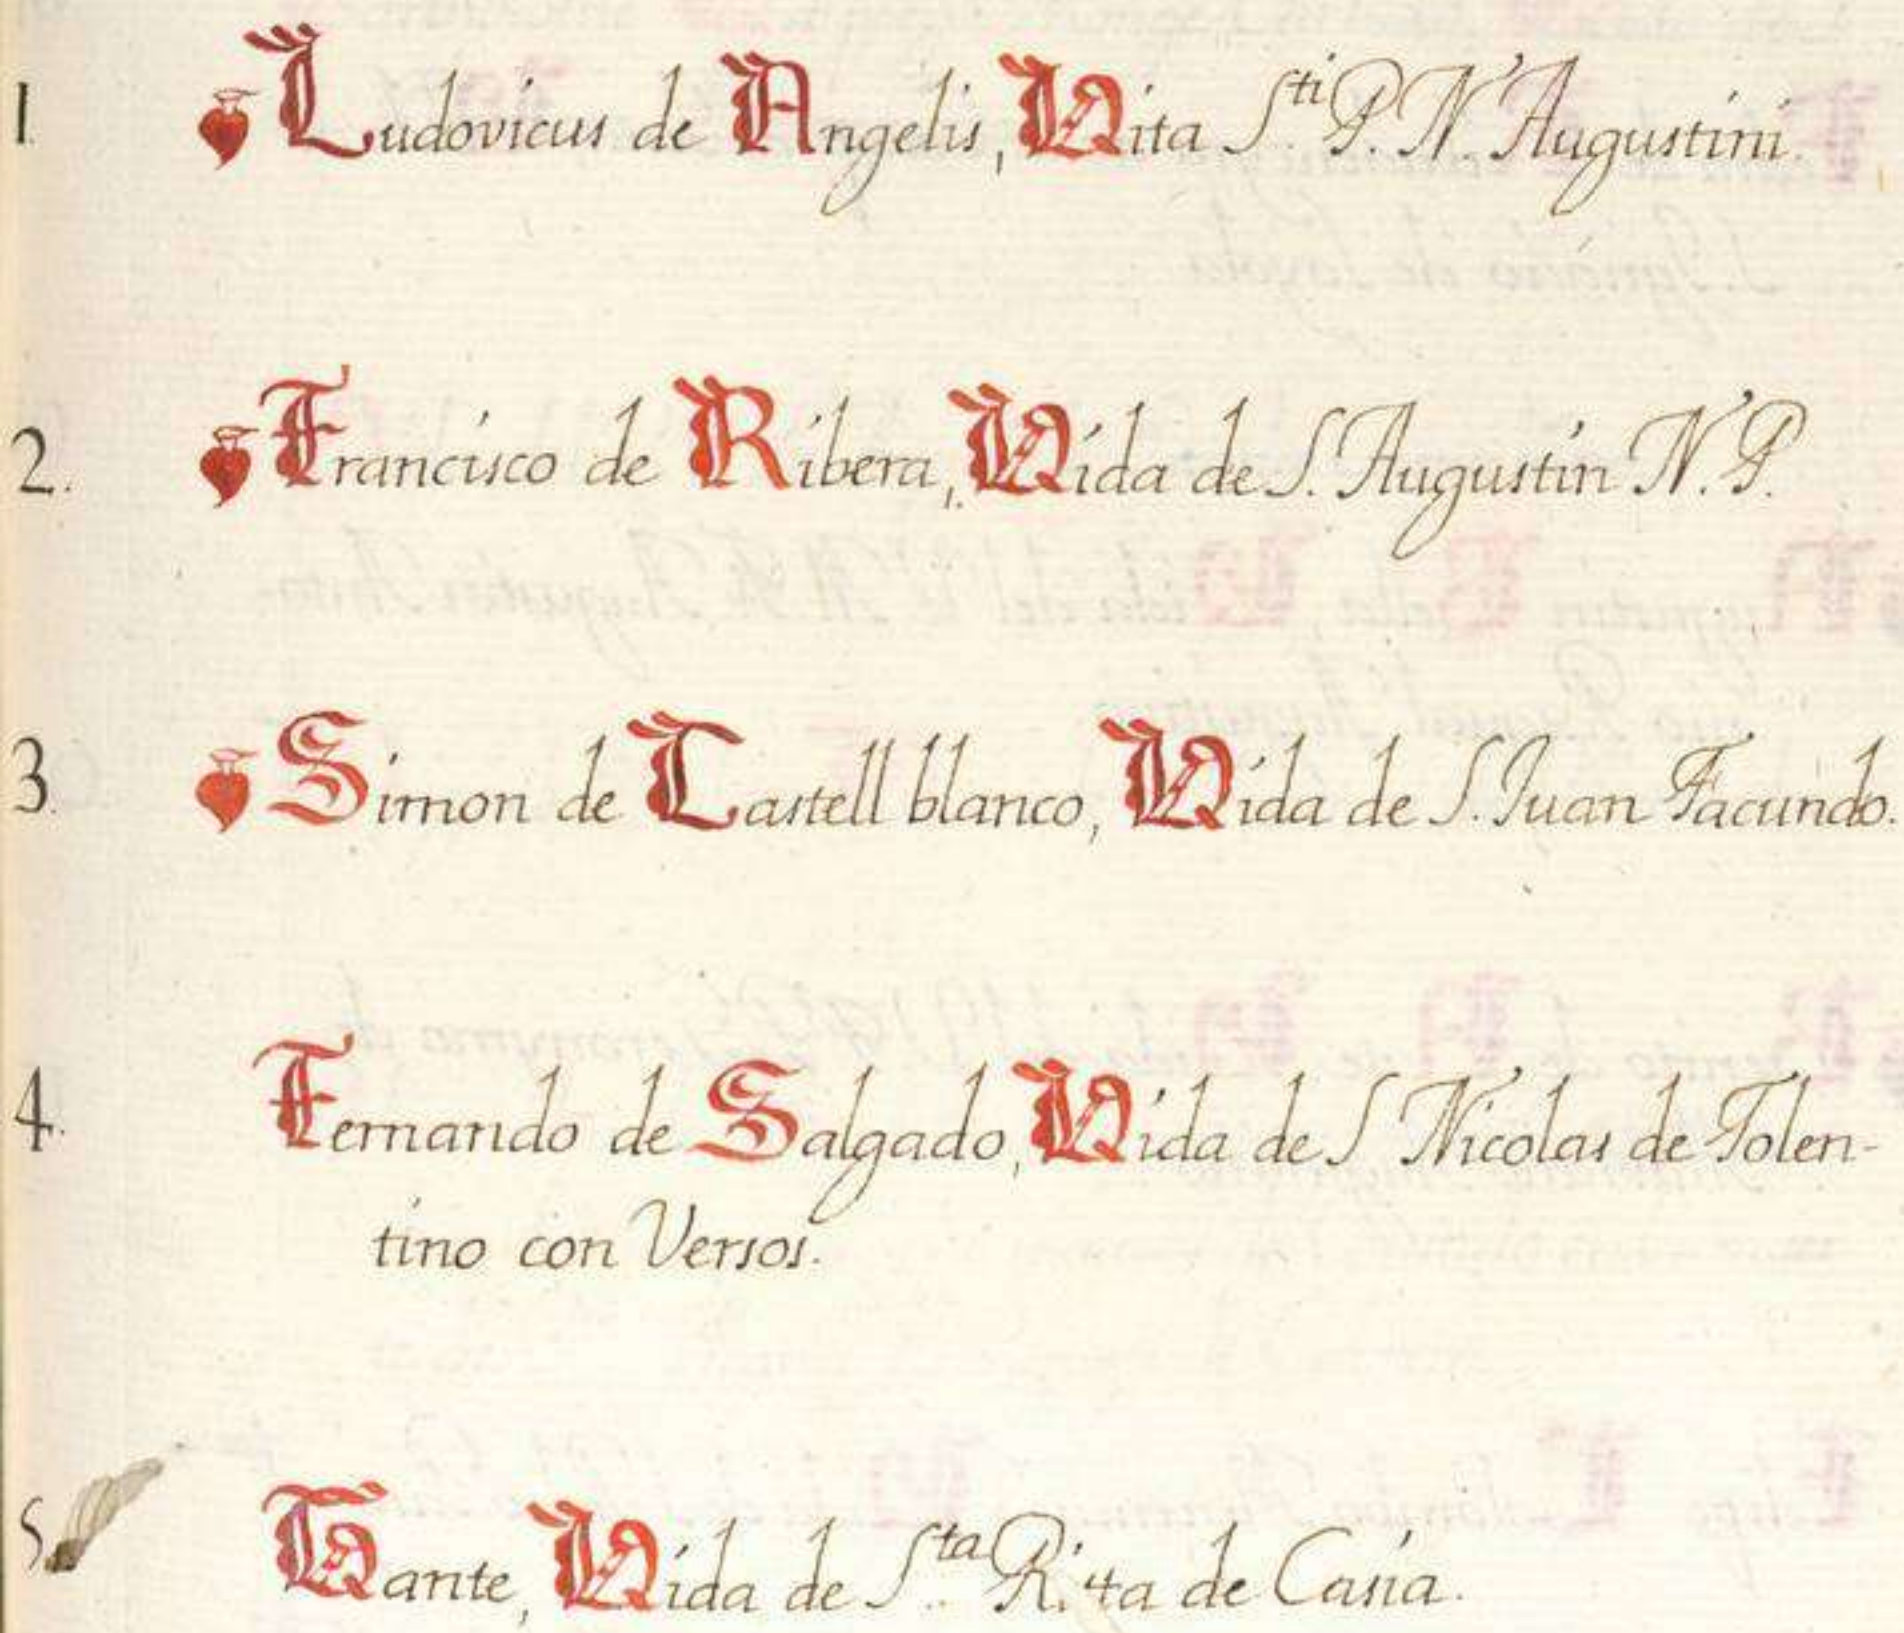 1. Ludovicus de Angelis, Vita S.ti P. N. Augustini.
2. Francisco de Ribera, Vida de S. Augustin N. P.
3. Simon de Castell blanco, Vida de S. Juan Facundo.
4. Fernando de Salgado, Vida de S Nicolas de Tolen-
tino con Versos.
5. Vida de S.ta Rita de Casia.